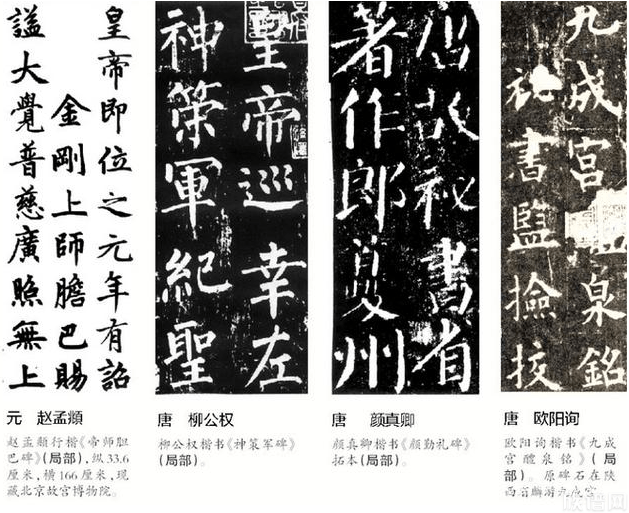 皇帝即位之元年有詔
金剛上師膽巴賜
謚大覺普慈廣照無上
皇帝巡幸左
神策軍紀聖
唐故祕書省
著作郎夔州
九成宮泉銘
書監撿挍
元 赵孟頫
赵孟頫行楷《帝师胆
巴碑》(局部),纵33.6
厘米,横166厘米,现
藏北京故宫博物院。
唐 柳公权
柳公权楷书《神策军碑》
(局部)。
唐 颜真卿
颜真卿楷书《颜勤礼碑》
拓本(局部)。
唐 欧阳询
欧阳询楷书《九成
宫醴泉铭》(局
部)。原碑石在陕
西省麟游九成宫。